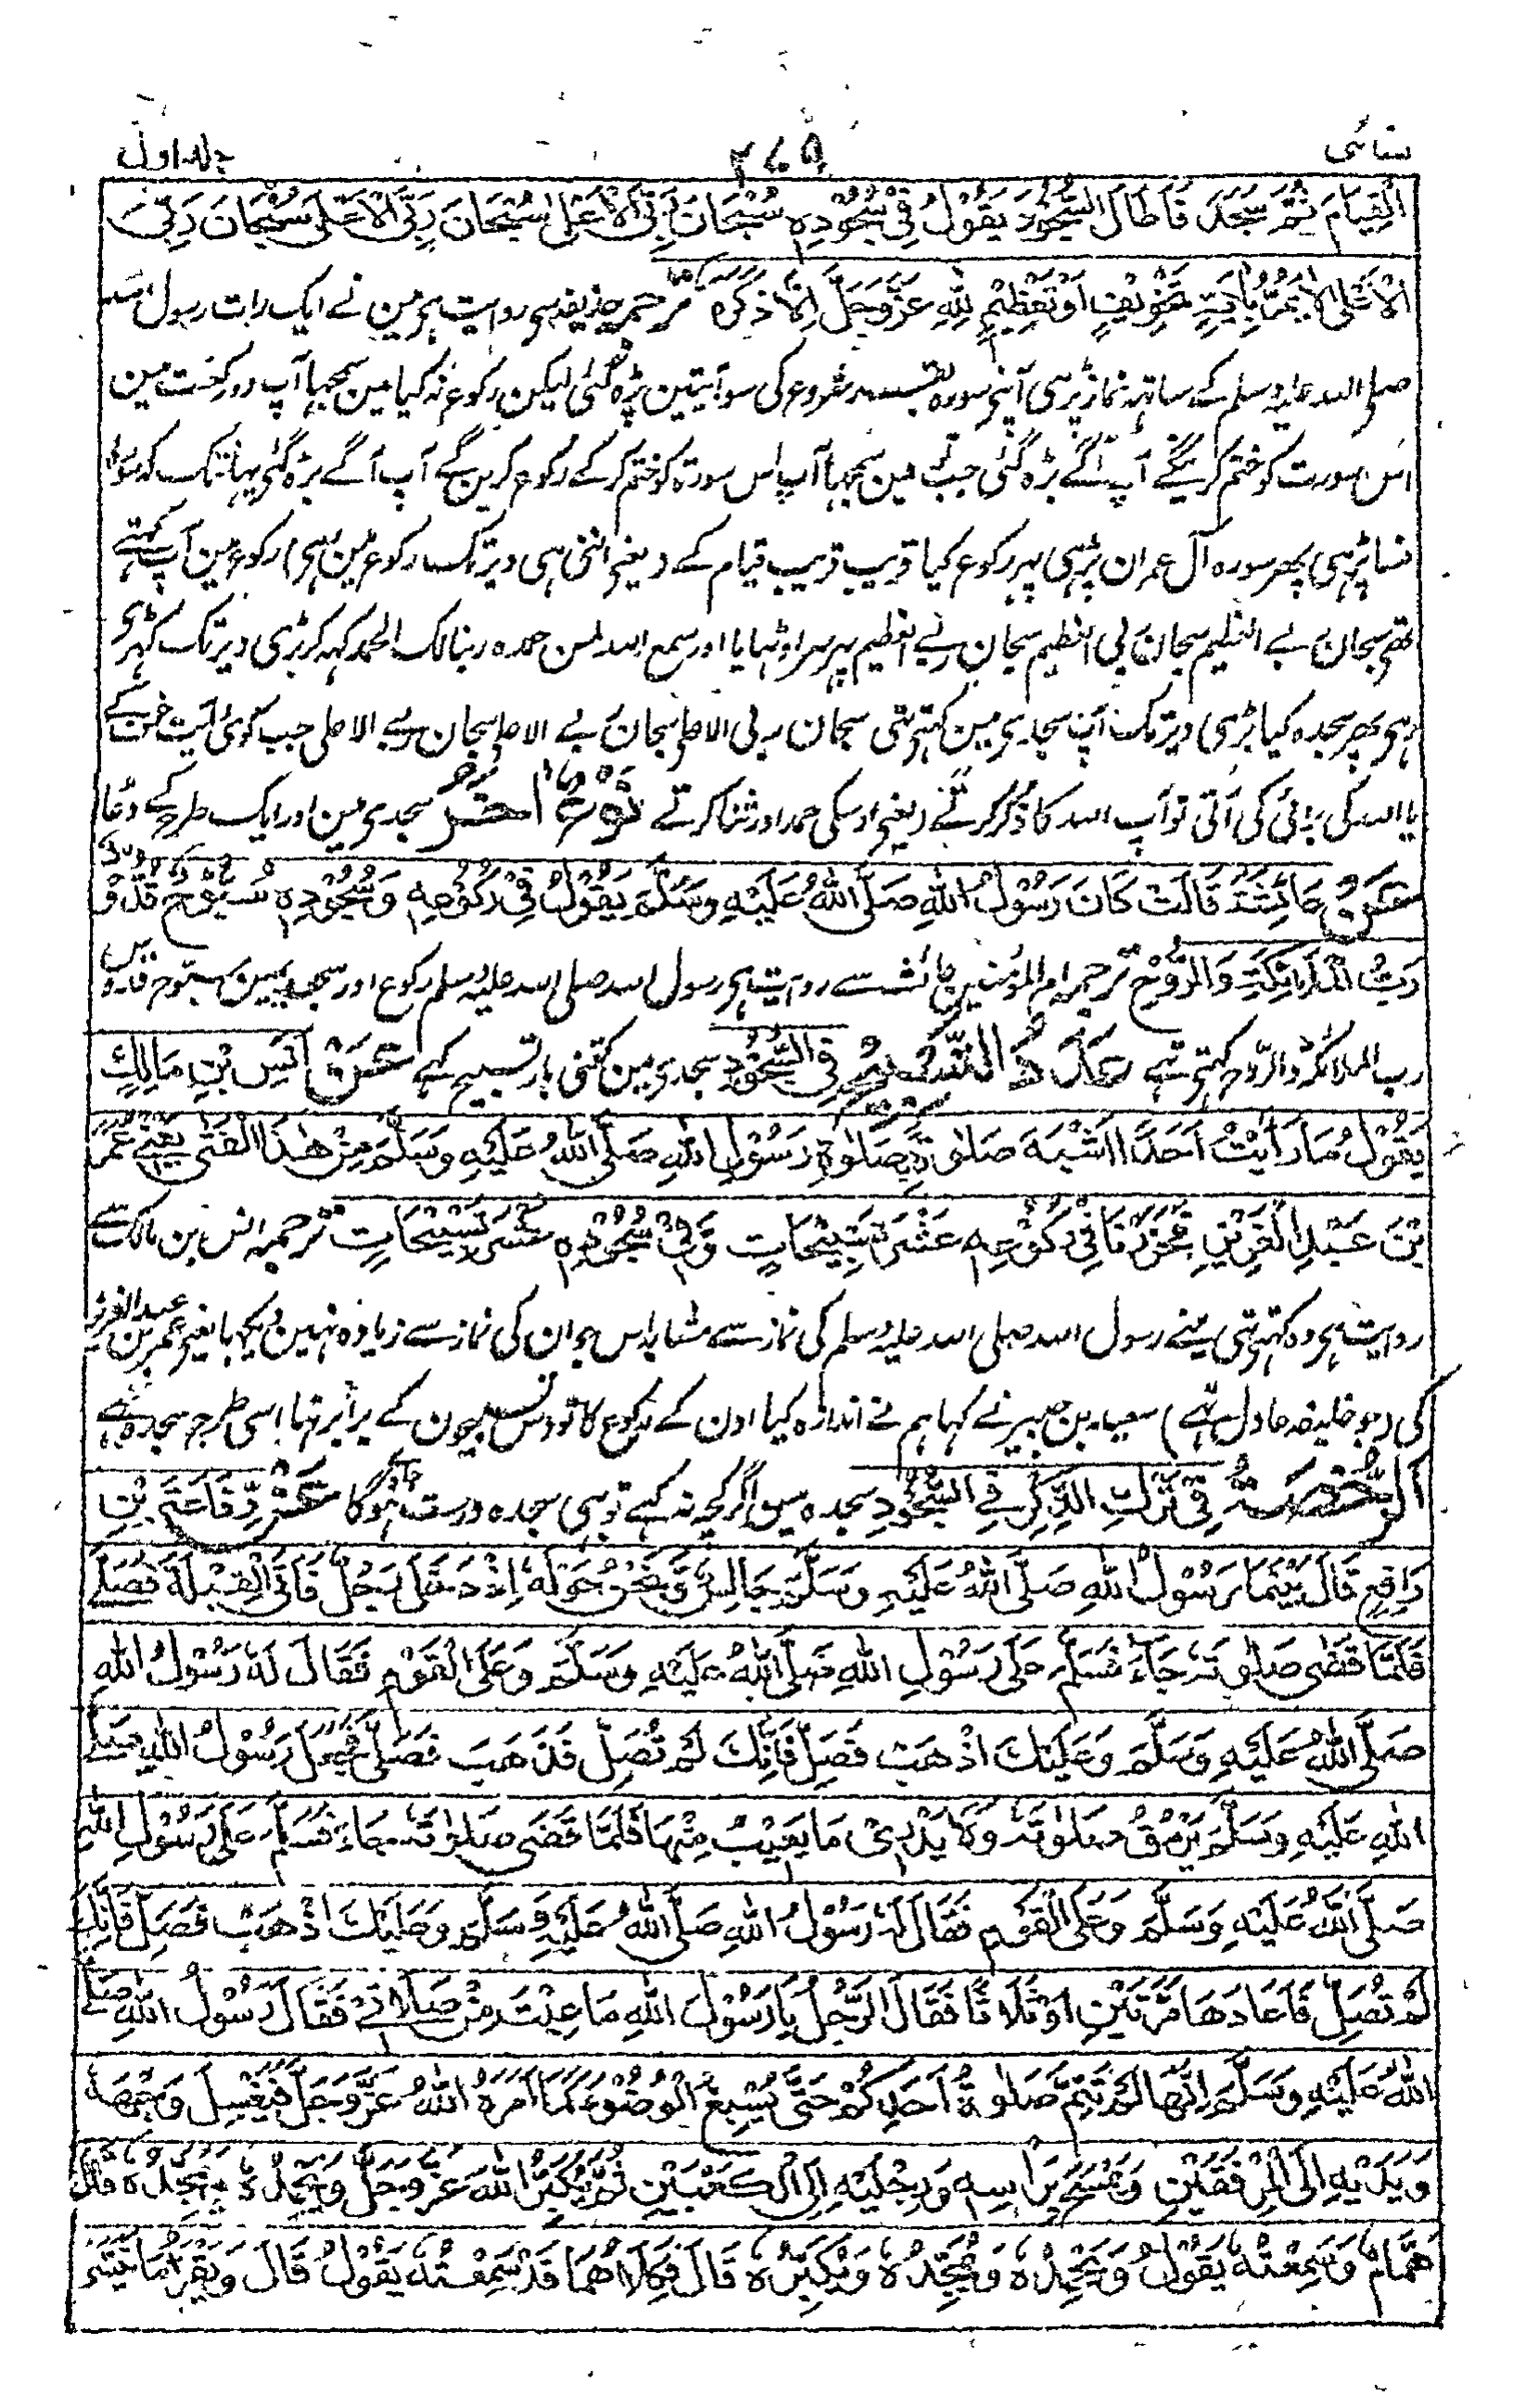 نسائی ۲۷۵ جلد اول
الْقِيَامَ ثُمَّ سَجَدَ فَأَطَالَ السُّجُوْدَ يَقُوْلُ فِيْ سُجُوْدِهٖ سُبْحَانَ رَبِّيَ الْاَعْلٰى سُبْحَانَ رَبِّيَ الْاَعْلٰى سُبْحَانَ رَبِّيَ
الْاَعْلٰى لَا يَمُرُّ بِاٰيَةِ تَخْوِيْفٍ اَوْ تَعْظِيْمٍ لِلّٰهِ عَزَّ وَجَلَّ اِلَّا ذَكَرَهٗ ترجمہ حذیفہ سے روایت ہے مین نے ایک رات رسول اللہ
صلی اللہ علیہ وسلم کے ساتھ نماز پڑہی آپنے سورہ بقرہ شروع کی سو آیتین پڑہ گئی لیکن رکوع نہ کیا مین سمجہا آپ دو رکعت مین
اس سورت کو ختم کرینگے آپ آگے بڑہ گئی جب مین سمجہا آپ اس سورۃ کو ختم کر کے رکوع کرین گے آپ آگے بڑہ گئی یہانتک کہ سورہ
نسا پڑہی پھر سورہ آل عمران پڑہی پہر رکوع کیا قریب قریب قیام کے (یعنے اتنی ہی دیر تک رکوع مین رہی) رکوع مین آپ کہتے
تھی سبحان ربے العظیم سبحان ربی العظیم سبحان ربے العظیم پہر سر اوٹہایا اور سمع اللہ لمن حمدہ ربنا لک الحمد کہہ کر بڑی دیر تک کہڑی
رہی پھر سجدہ کیا بڑی دیر تک آپ سجدی مین کہتی تہی سبحان ربی الاعلی سبحان ربے الاعلی سبحان ربے الاعلی جب کوئی آیت خوف کے
یا اللہ کی بڑائی کی آتی تو آپ اللہ کا ذکر کرتے (یعنی اوسکی حمد اور ثنا کرتے نَوْعٌ اٰخَرُ سجدی مین اور ایک طرح کے دعا
عَنْ عَائِشَةَ قَالَتْ كَانَ رَسُوْلُ اللّٰهِ صَلَّى اللّٰهُ عَلَيْهِ وَسَلَّمَ يَقُوْلُ فِيْ رُكُوْعِهٖ وَسُجُوْدِهٖ سُبُّوْحٌ قُدُّوْسٌ
رَبُّ الْمَلٰئِكَةِ وَالرُّوْحِ ترجمہ ام المؤمنین عائشہ سے روایت ہے رسول اللہ صلی اللہ علیہ وسلم رکوع اور سجدیمین سبوح قدوس
رب الملائکۃ والروح کہتی تہے عَدَدُ التَّسْبِيْحِ فِي السُّجُوْدِ سجدی مین کتنی بار تسبیح کہے عَنْ اَنَسِ بْنِ مَالِكٍ
يَقُوْلُ مَا رَاَيْتُ اَحَدًا اَشْبَهَ صَلٰوةً بِصَلٰوةِ رَسُوْلِ اللّٰهِ صَلَّى اللّٰهُ عَلَيْهِ وَسَلَّمَ مِنْ هٰذَا الْفَتٰى يَعْنِيْ عُمَرَ
بْنَ عَبْدِ الْعَزِيْزِ فَحَزَرْنَا فِيْ رُكُوْعِهٖ عَشْرَ تَسْبِيْحَاتٍ وَفِيْ سُجُوْدِهٖ عَشْرَ تَسْبِيْحَاتٍ ترجمہ انس بن مالک سے
روایت ہے وہ کہتی تہی مینے رسول اللہ صلی اللہ علیہ وسلم کی نماز سے مشابہ اس جوان کی نماز سے زیادہ نہین دیکہا یعنی عمر بن عبد العزیز
کی (جو خلیفہ عادل تہے) سعید بن جبیر نے کہا ہم نے اندازہ کیا اون کے رکوع کا تو دس تسبیحون کے برابر تہا اسی طرح سجدہ
اَلرُّخْصَةُ فِيْ تَرْكِ الذِّكْرِ فِي السُّجُوْدِ سجدہ مین اگر کچہ نہ کہے تو بہی سجدہ درست ہوگا عَنْ رِّفَاعَةَ بْنِ
رَافِعٍ قَالَ بَيْنَمَا رَسُوْلُ اللّٰهِ صَلَّى اللّٰهُ عَلَيْهِ وَسَلَّمَ جَالِسٌ وَّنَحْنُ حَوْلَهٗ اِذْ دَخَلَ رَجُلٌ فَاَتَى الْقِبْلَةَ فَصَلّٰى
فَلَمَّا قَضٰى صَلٰوتَهٗ جَاءَ فَسَلَّمَ عَلٰى رَسُوْلِ اللّٰهِ صَلَّى اللّٰهُ عَلَيْهِ وَسَلَّمَ وَعَلَى الْقَوْمِ فَقَالَ لَهٗ رَسُوْلُ اللّٰهِ
صَلَّى اللّٰهُ عَلَيْهِ وَسَلَّمَ وَعَلَيْكَ اذْهَبْ فَصَلِّ فَاِنَّكَ لَمْ تُصَلِّ فَذَهَبَ فَصَلّٰى فَجَعَلَ رَسُوْلُ اللّٰهِ صَلَّى
اللّٰهُ عَلَيْهِ وَسَلَّمَ يَرْمُقُ صَلٰوتَهٗ وَلَا يَدْرِيْ مَا يَعِيْبُ مِنْهَا فَلَمَّا قَضٰى صَلٰوتَهٗ جَاءَ فَسَلَّمَ عَلٰى رَسُوْلِ اللّٰهِ
صَلَّى اللّٰهُ عَلَيْهِ وَسَلَّمَ وَعَلَى الْقَوْمِ فَقَالَ لَهٗ رَسُوْلُ اللّٰهِ صَلَّى اللّٰهُ عَلَيْهِ وَسَلَّمَ وَعَلَيْكَ اذْهَبْ فَصَلِّ فَاِنَّكَ
لَمْ تُصَلِّ فَاَعَادَهَا مَرَّتَيْنِ اَوْ ثَلَاثًا فَقَالَ الرَّجُلُ يَا رَسُوْلَ اللّٰهِ مَا عِبْتَ مِنْ صَلَاتِيْ فَقَالَ رَسُوْلُ اللّٰهِ صَلَّى
اللّٰهُ عَلَيْهِ وَسَلَّمَ اِنَّهَا لَمْ تَتِمَّ صَلٰوةُ اَحَدِكُمْ حَتّٰى يُسْبِغَ الْوُضُوْءَ كَمَا اَمَرَهُ اللّٰهُ عَزَّ وَجَلَّ فَيَغْسِلَ وَجْهَهٗ
وَيَدَيْهِ اِلَى الْمِرْفَقَيْنِ وَيَمْسَحَ بِرَاْسِهٖ وَرِجْلَيْهِ اِلَى الْكَعْبَيْنِ ثُمَّ يُكَبِّرُ اللّٰهَ عَزَّ وَجَلَّ وَيَحْمَدُهٗ وَيُمَجِّدُهٗ قَالَ
هَمَّامٌ وَسَمِعْتُهٗ يَقُوْلُ وَيَحْمَدُهٗ وَيُمَجِّدُهٗ وَيُكَبِّرُهٗ قَالَ فَكِلَاهُمَا قَدْ سَمِعْتُهٗ يَقُوْلُ قَالَ وَيَقْرَاُ مَا تَيَسَّرَ